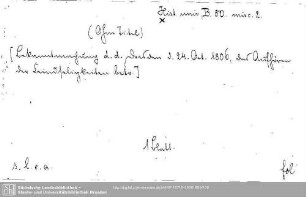 Hist. univ. B. 80. misc. 2.
(Ohne Titel)
[Bekanntmachung d. d. Dresden d. 24. Oct. 1806, das Aufhören
der Feindseligkeiten betr.]
1 Blatt.
s. l. e. a.
fol
Sächsische Landesbibliothek -
Staats- und Universitätsbibliothek Dresden